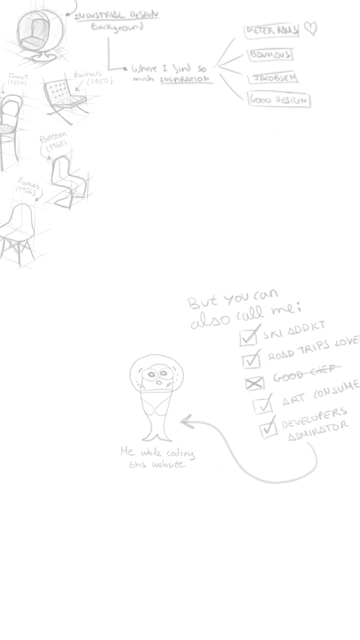 INDUSTRIAL DESIGN
Background
Where I find so
much INSPIRATION
DIETER RAMS
BAUHAUS
JACOBSEN
GOOD DESIGN
Panton
(1960)
But you can
also call me:
SKI ADDICT
ROAD TRIPS LOVE
GOOD CHEF
ART CONSUME
DEVELOPERS
ADMIRATOR
Me while coding
this website